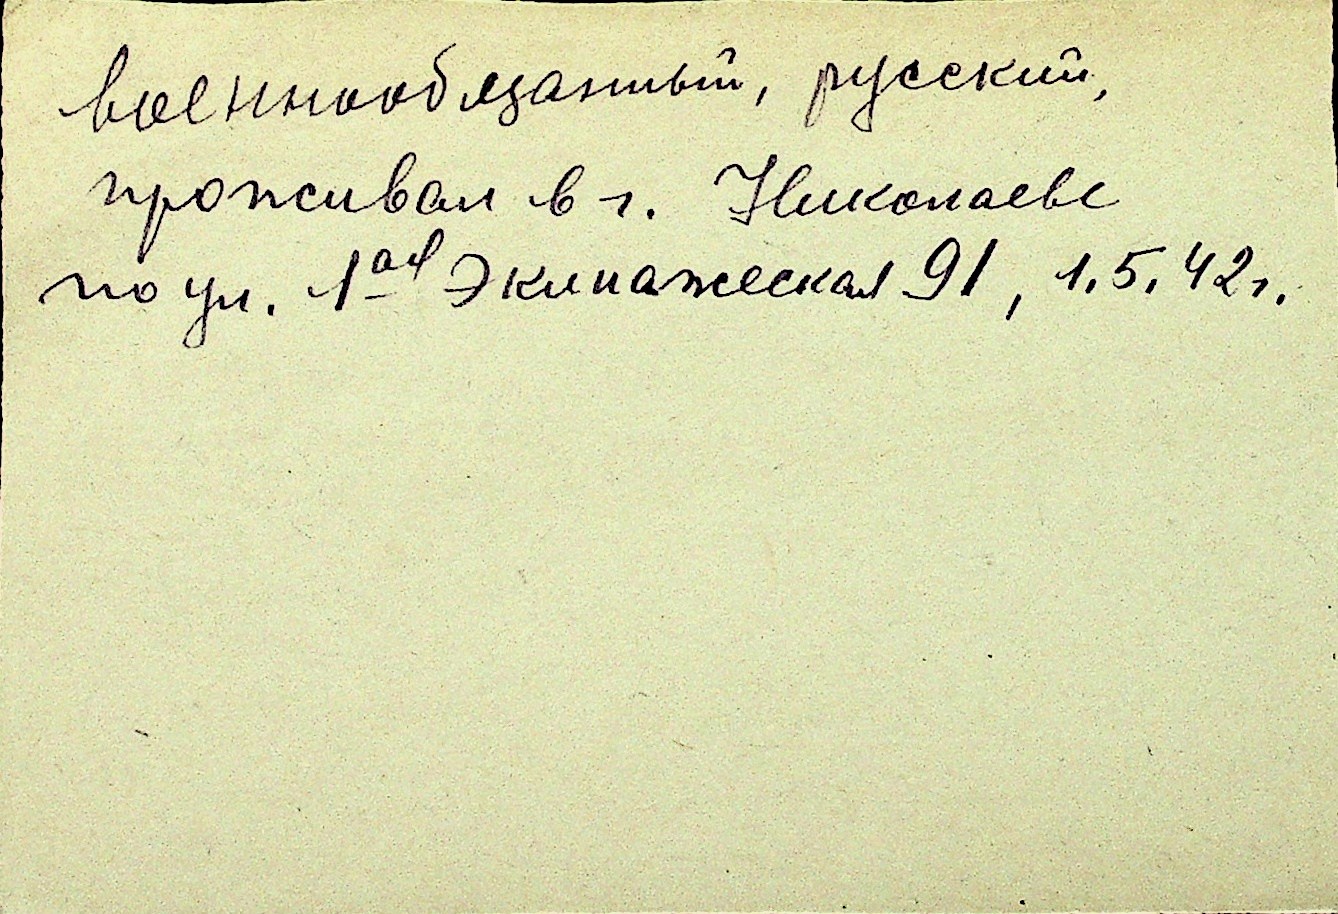 военнообязанный, русский,
проживал в г. Николаеве
по ул. 1ая Экипажеская 91, 1.5.42г.